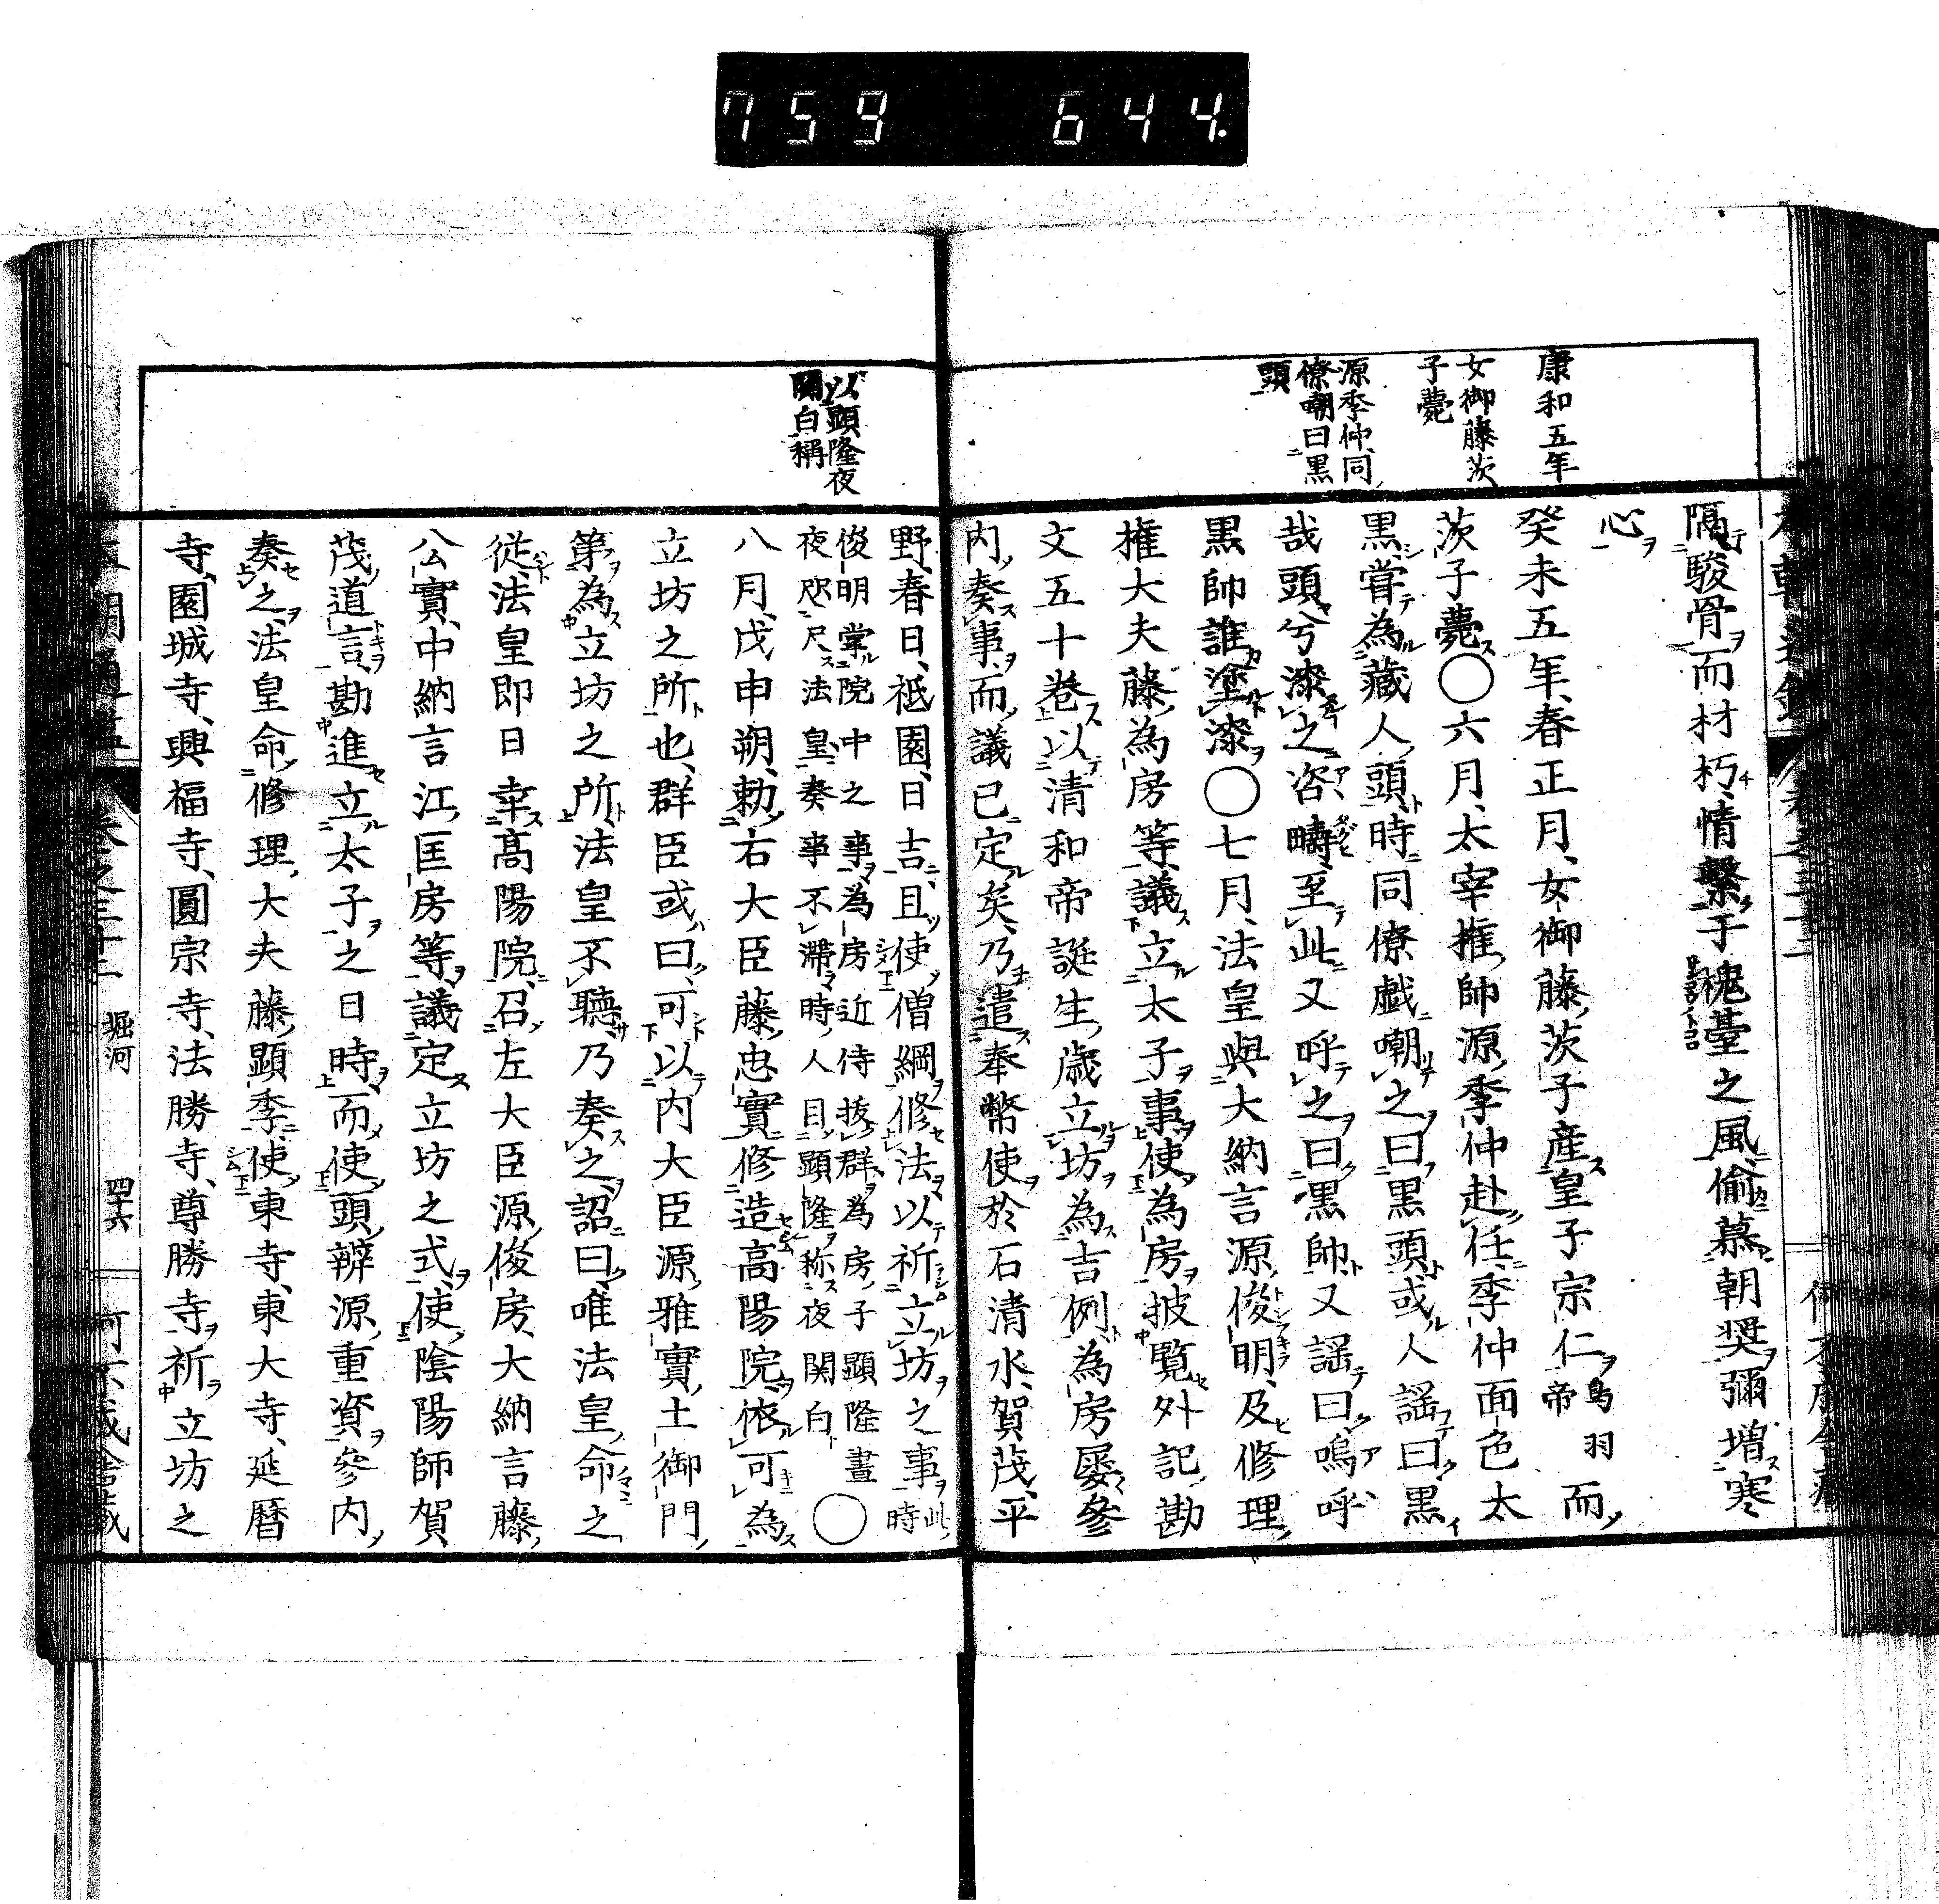 759 644.
康和五年
女御藤茨
子薨
源季仲同
僚嘲曰黒
頭
隔駿骨而材朽情繫于槐臺之風偷慕朝奨彌増寒
心
癸未五年、春正月、女御藤茨子産皇子宗仁鳥羽帝而
茨子薨〇六月、太宰権帥源季仲赴任、季仲面色太
黒、嘗為蔵人頭、時同僚戯嘲之曰黒頭、或人謡曰、黒
哉頭兮漆之咨疇、至此又呼之曰黒帥、又謡曰、嗚呼
黒帥誰塗漆〇七月、法皇與大納言源俊明、及修理
権大夫藤為房等、議立太子事、使為房披覧外記勘
文五十巻、以清和帝誕生歳立坊為吉例、為房屡参
内奏事、而議已定矣、乃遣奉幣使於石清水、賀茂、平
以顕隆夜
關白稱
野、春日、祗園、日吉、且使僧綱修法以祈立坊之事此時
俊明掌院中之事為房近侍抜群為房子顕隆晝
夜咫尺法皇奏事不滞時人目顕隆称夜関白〇
八月、戊申朔、勅右大臣藤忠實修造高陽院、依可為
立坊之所也、群臣或曰、可以内大臣源雅實土御門
第為立坊之所、法皇不聴、乃奏之、詔曰、唯法皇命之
従、法皇即日幸高陽院、召左大臣源俊房、大納言藤
公實、中納言江匡房等、議定立坊之式、使陰陽師賀
茂道言勘進立太子之日時、而使頭辨源重資参内
奏之、法皇命修理大夫藤顕季、使東寺、東大寺、延暦
寺、園城寺、興福寺、圓宗寺、法勝寺、尊勝寺祈立坊之
堀河
四十六